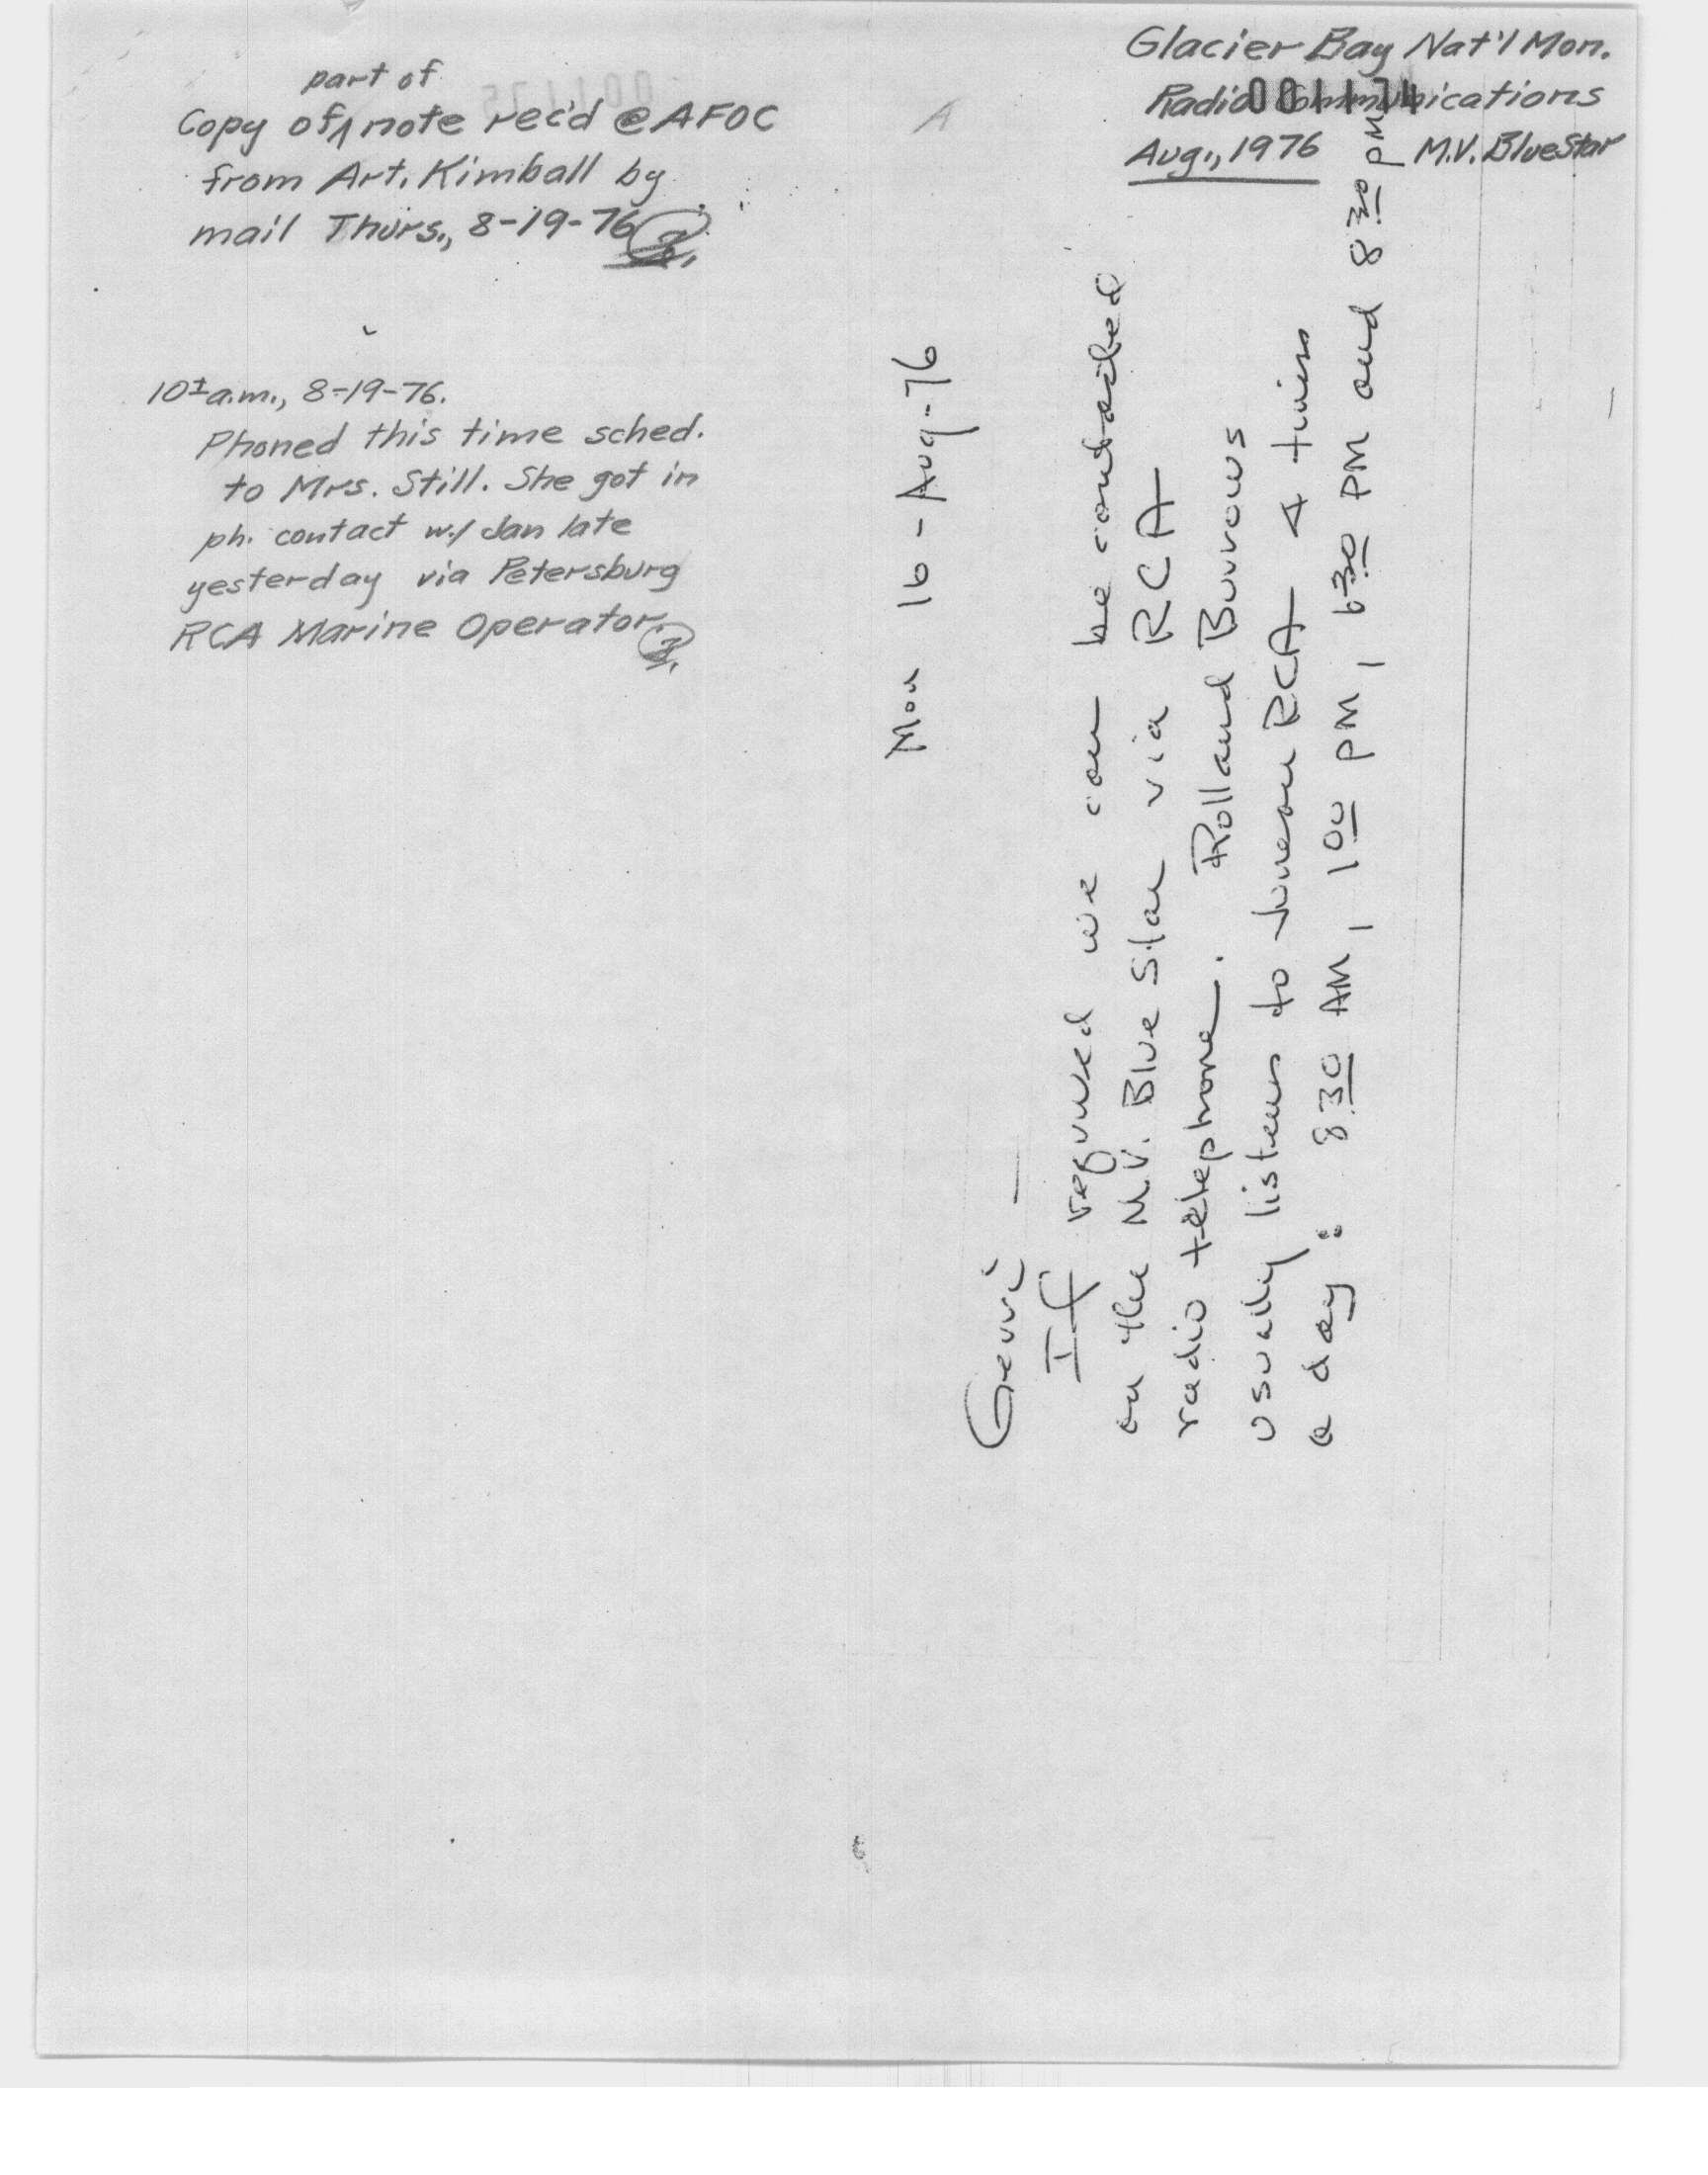 Glacier Bay Nat'l Mon.
Radio Communications
001174
Aug., 1976 M.V. BlueStar
part of
Copy of ^ note rec'd @ AFOC
from Art. Kimball by
mail Thurs., 8-19-76
10± a.m., 8-19-76.
Phoned this time sched.
to Mrs. Still. She got in
ph. contact w/ Jan late
yesterday via Petersburg
RCA Marine Operator.
A
001175
Mon 16-Aug-76
If required we can be contacted
on the M.V. Blue Star via RCA
radio telephone. Rolland Burrows
usually listens to Juneau RCA 4 times
a day: 8:30 AM, 1 00 PM, 6 30 PM and 8 30 PM